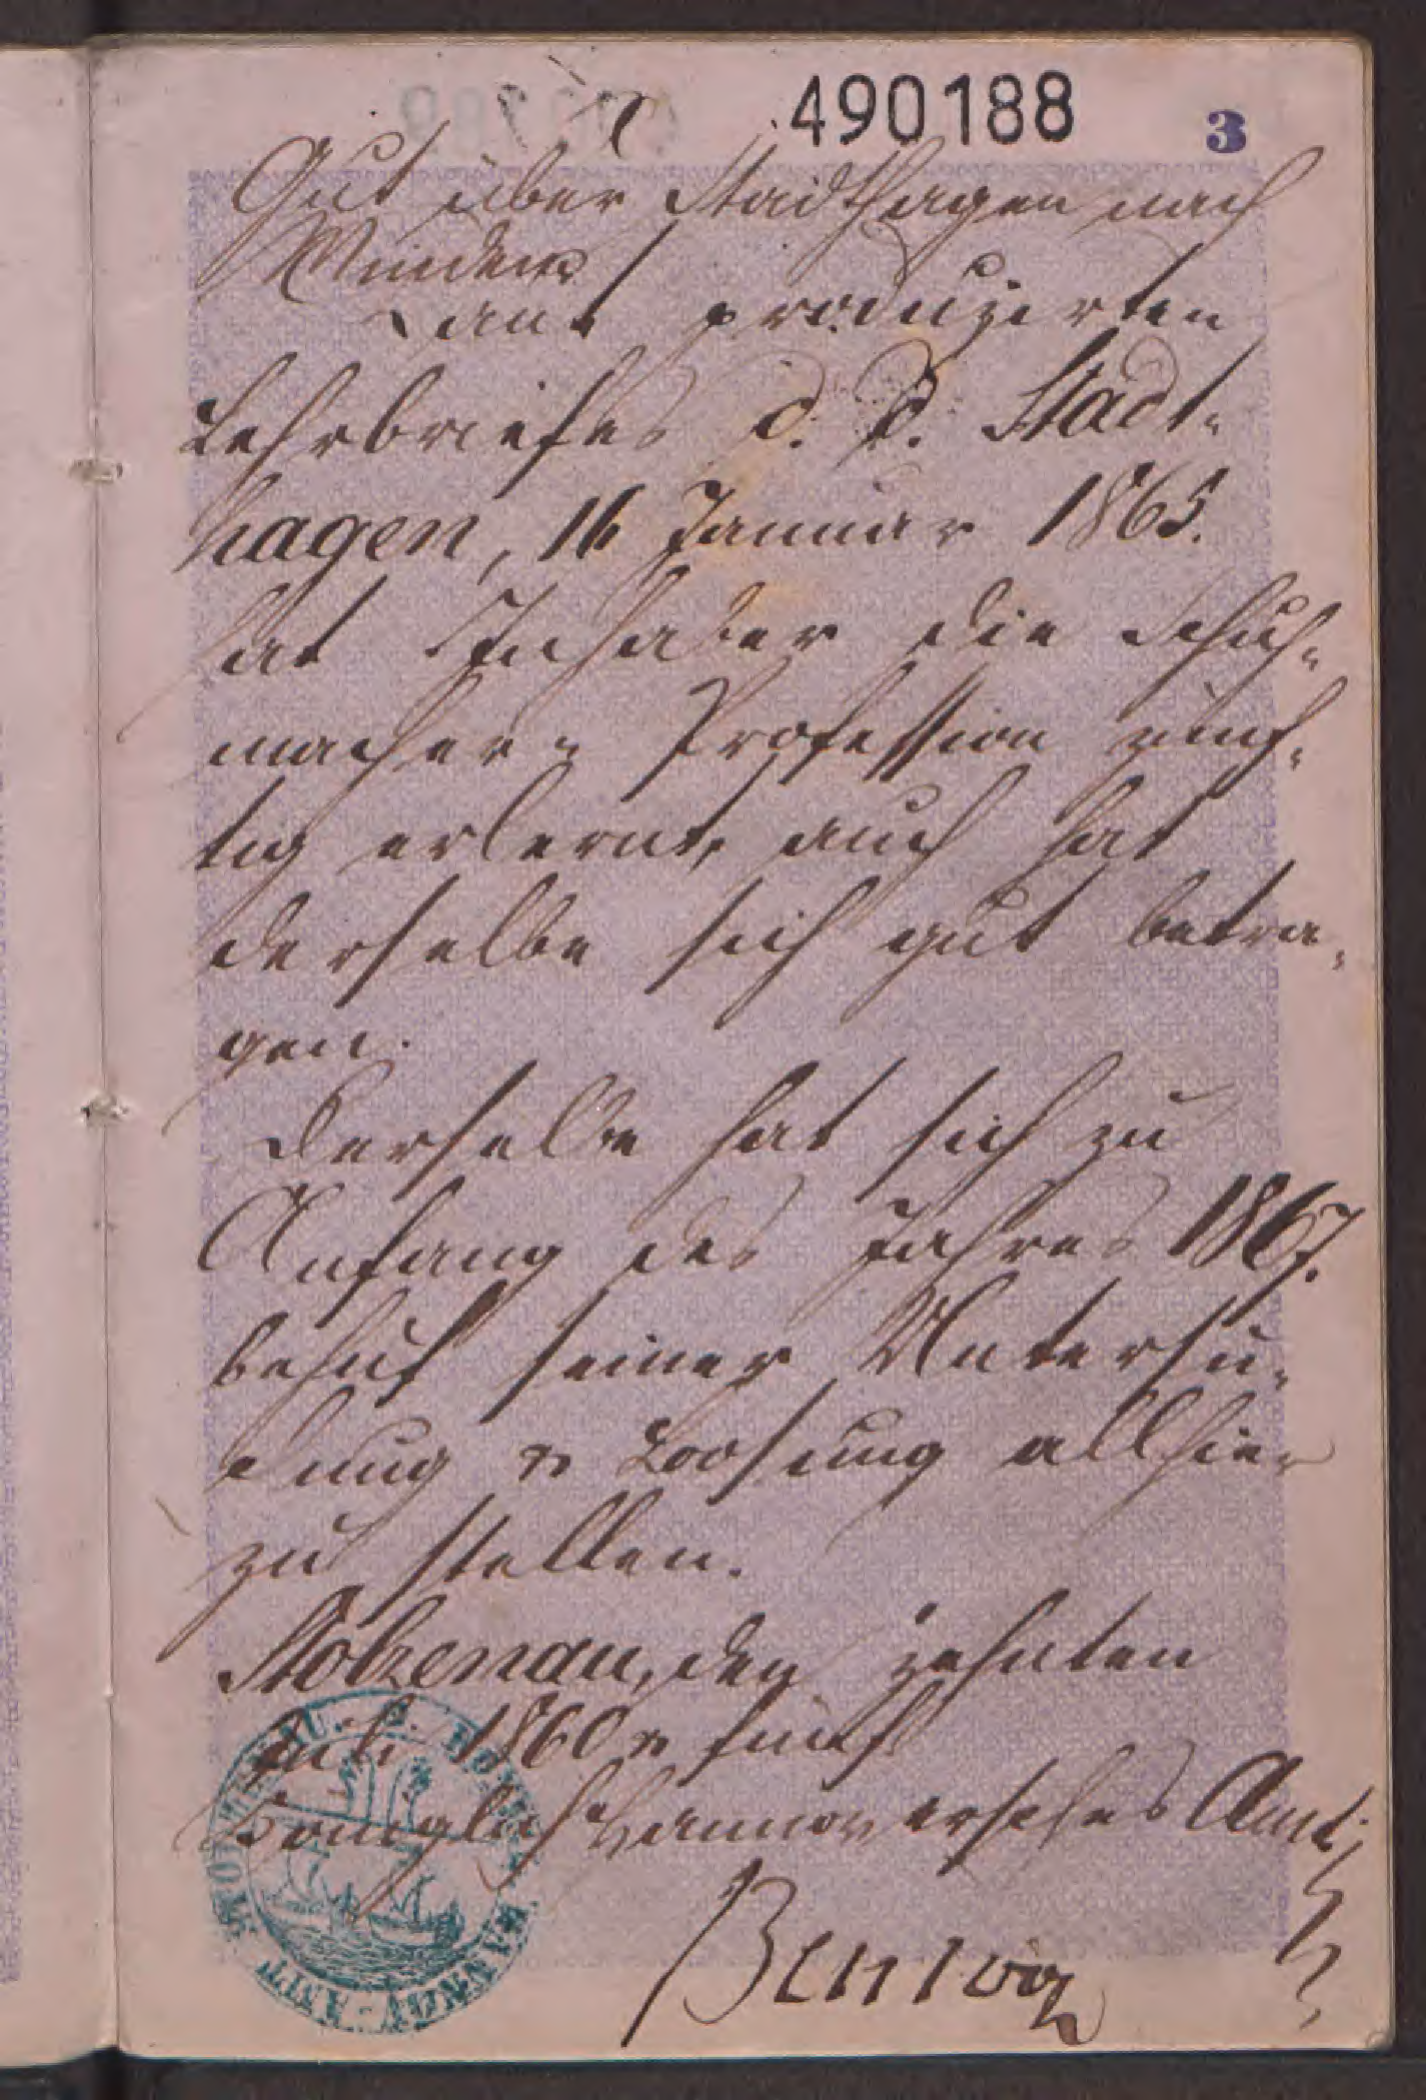 490188 3
Gut über Stadthagen nach
Minden
Laut produzirten
Lehrbriefes d. d. Stadt-
hagen, 16 Januar 1865.
hat Inhaber die Schuh-
macher-Profession zünf-
tig erlernt, auch hat
derselbe sich gut betra-
gen.
Derselbe hat sich zu
Anfang des Jahres 1867.
behuf seiner Untersu-
chung u Loosung allhier
zu stellen.
Stolzenau, den zehnten
Juli 1860 u fünf
Königlich Hannoversches Amt;